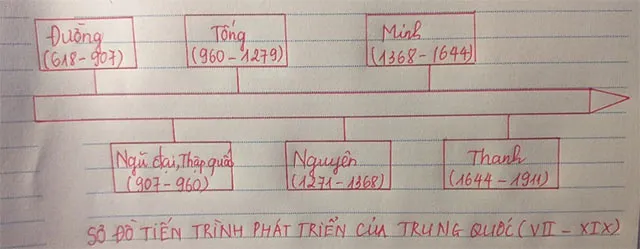 Đường
(618 - 907)
Tống
(960 - 1279)
Minh
(1368 - 1644)
Ngũ đại, Thập quốc
(907 - 960)
Nguyên
(1271 - 1368)
Thanh
(1644 - 1911)
SƠ ĐỒ TIẾN TRÌNH PHÁT TRIỂN CỦA TRUNG QUỐC (VII - XIX)